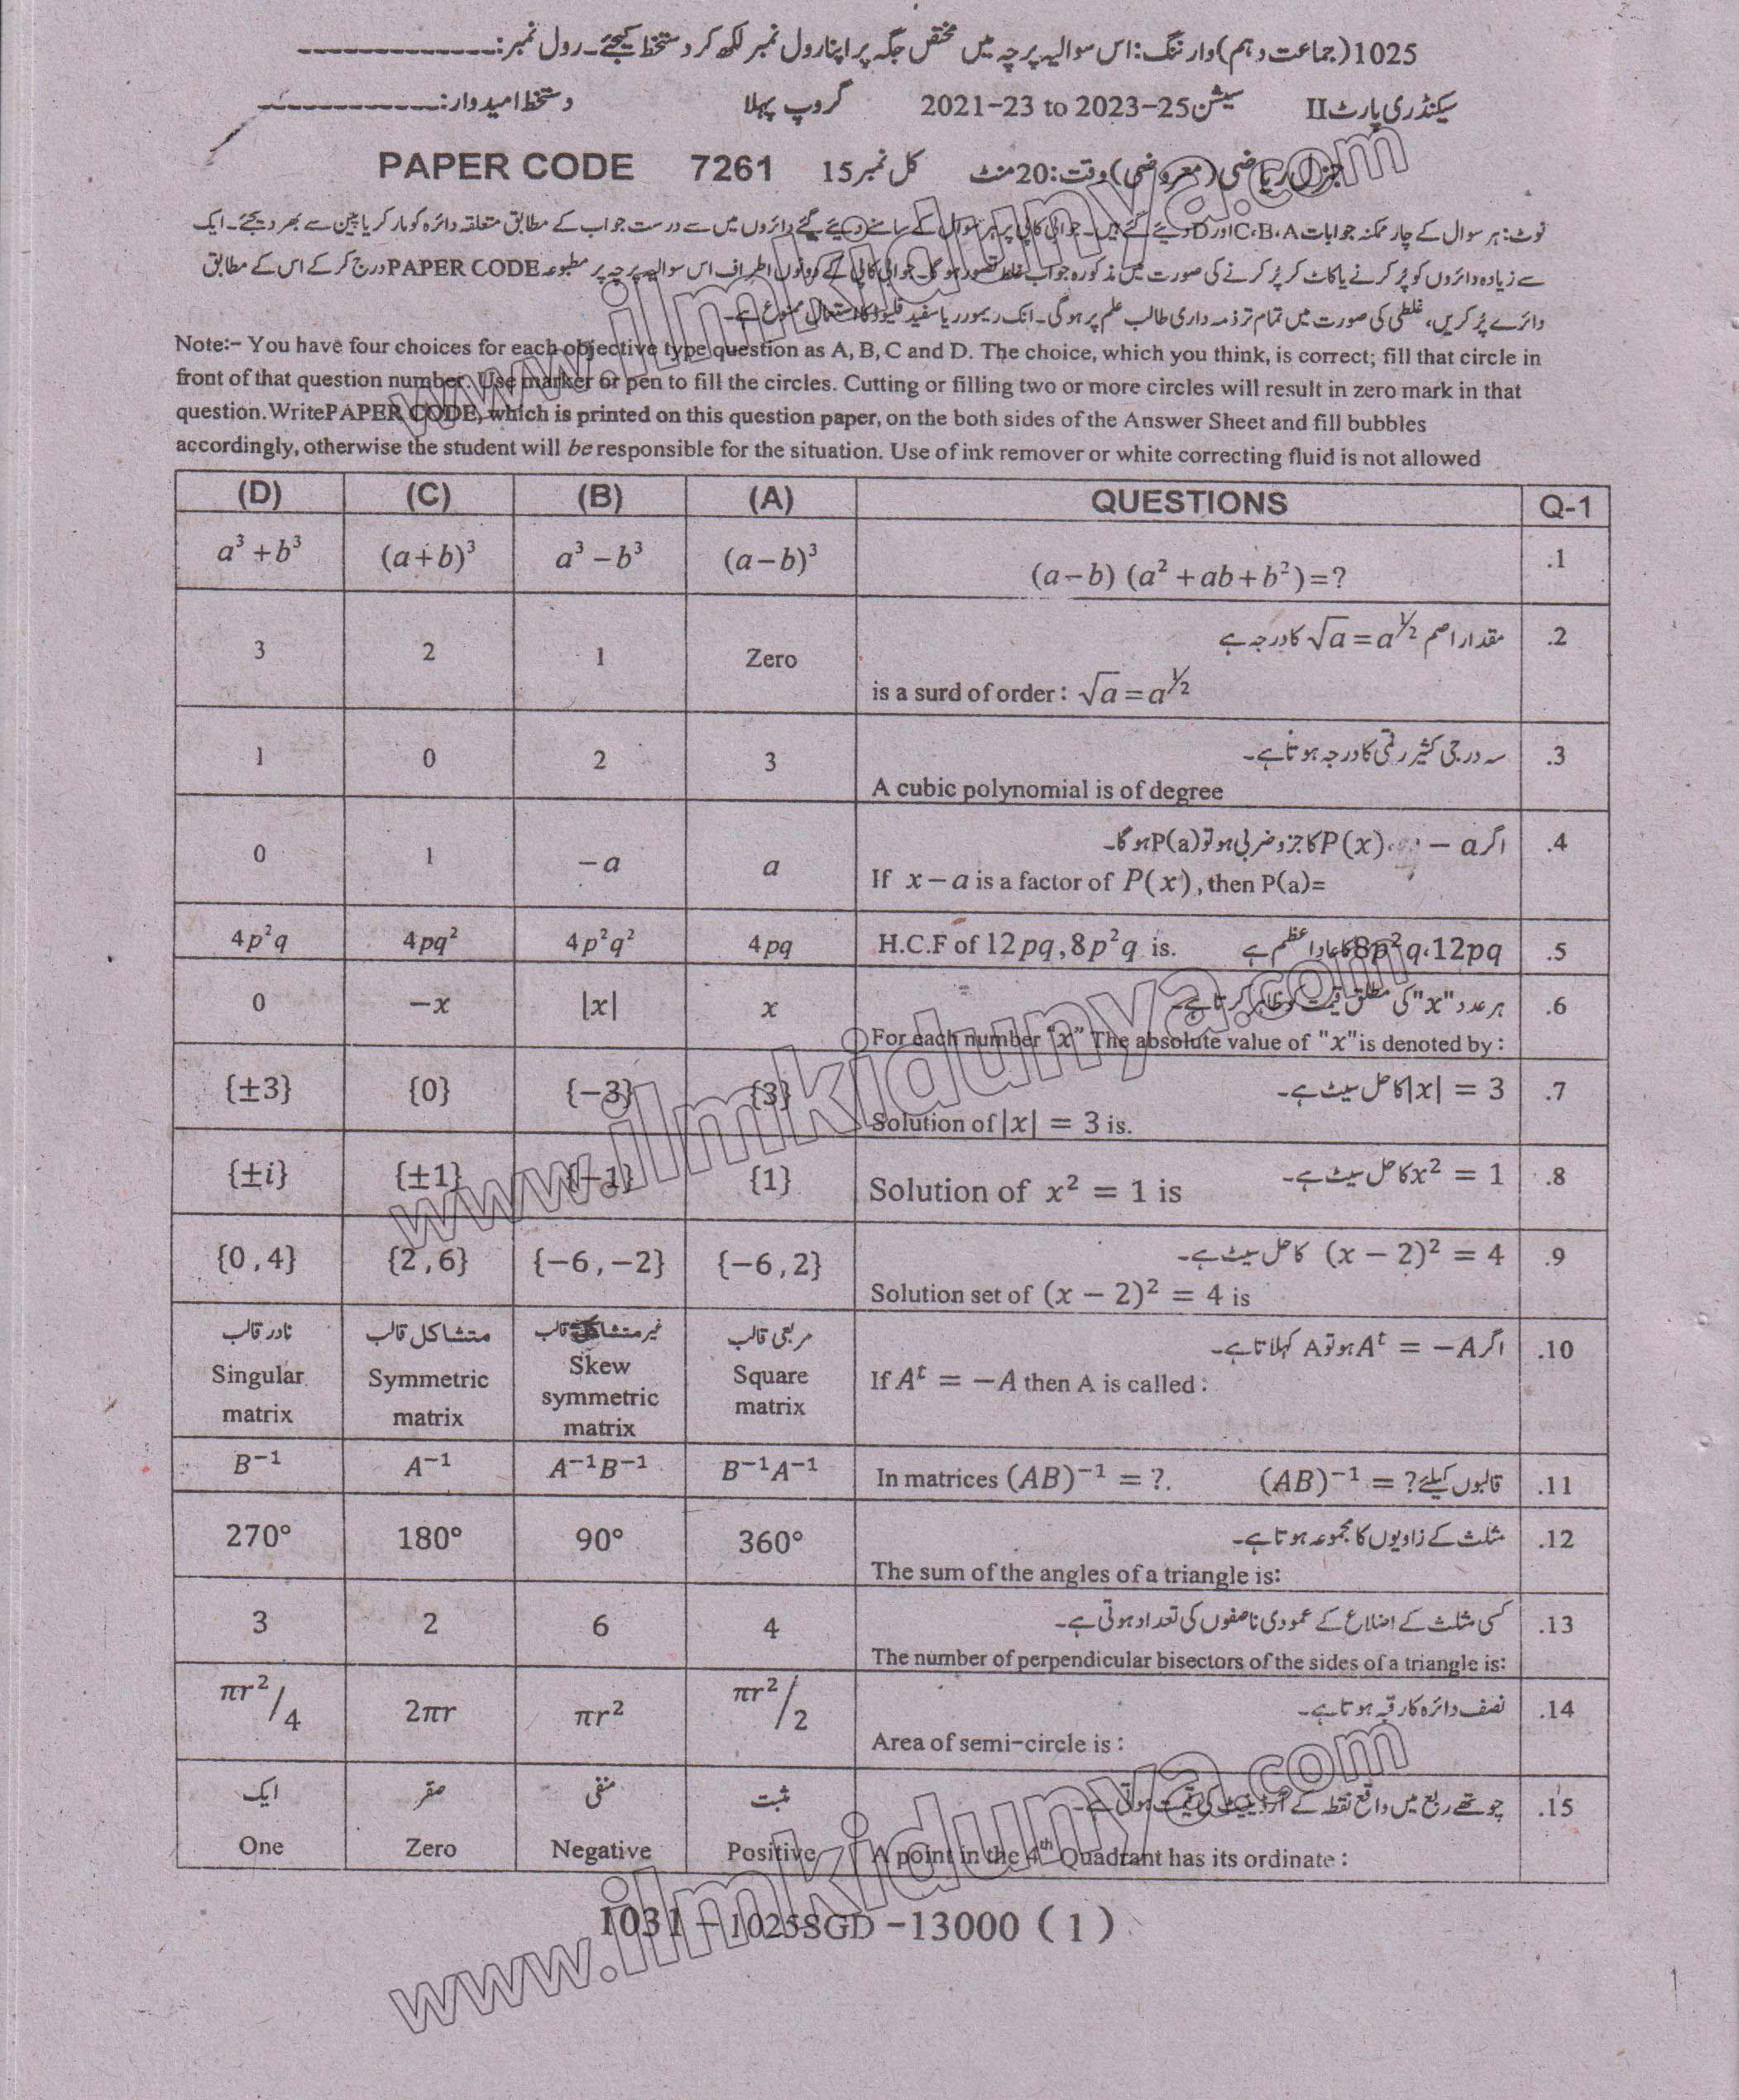 1025(جماعت دہم) وارننگ: اس سوالیہ پرچہ میں مختص جگہ پر اپنا رول نمبر لکھ کر دستخط کیجئے۔ رول نمبر:-------------
سیکنڈری پارٹ II سیشن 2021-23 to 2023-25 گروپ پہلا دستخط امیدوار:------------
جنرل ریاضی (معروضی) وقت: 20 منٹ کل نمبر 15 PAPER CODE 7261
نوٹ: ہر سوال کے چار ممکنہ جوابات C،B،A اور D دیئے گئے ہیں۔ جوابی کاپی پر ہر سوال کے سامنے دیئے گئے دائروں میں سے درست جواب کے مطابق متعلقہ دائرہ کو مارکر یا پین سے بھر دیجئے۔ ایک
سے زیادہ دائروں کو پُر کرنے یا کاٹ کر پُر کرنے کی صورت میں مذکورہ جواب غلط تصور ہوگا۔ جوابی کاپی کے دونوں اطراف اس سوالیہ پرچہ پر مطبوعہ PAPER CODE درج کر کے اس کے مطابق
دائرے پُر کریں، غلطی کی صورت میں تمام تر ذمہ داری طالب علم پر ہوگی۔ انک ریموور یا سفید فلیوڈ کا استعمال ممنوع ہے۔
Note:- You have four choices for each objective type question as A, B, C and D. The choice, which you think, is correct; fill that circle in
front of that question number. Use marker or pen to fill the circles. Cutting or filling two or more circles will result in zero mark in that
question.WritePAPER CODE, which is printed on this question paper, on the both sides of the Answer Sheet and fill bubbles
accordingly, otherwise the student will be responsible for the situation. Use of ink remover or white correcting fluid is not allowed
(D) (C) (B) (A) QUESTIONS Q-1
a³+b³ (a+b)³ a³−b³ (a−b)³ (a−b) (a²+ab+b²)=? .1
مقدار اصم √a = a^½ کا درجہ ہے .2
3 2 1 Zero
is a surd of order: √a = a^½
سہ درجی کثیر رقمی کا درجہ ہوتا ہے۔ .3
1 0 2 3
A cubic polynomial is of degree
اگر − a، P(x) کا جزو ضربی ہو تو P(a) ہوگا۔ .4
0 1 −a a
If x−a is a factor of P(x), then P(a)=
4p²q 4pq² 4p²q² 4pq H.C.F of 12pq, 8p²q is. 8p²q،12pq کا عاد اعظم ہے .5
ہر عدد "x" کی مطلق قیمت کو ظاہر کرتا ہے۔ .6
0 −x |x| x
For each number "x" The absolute value of "x"is denoted by:
|x| = 3 کا حل سیٹ ہے۔ .7
{±3} {0} {−3} {3}
Solution of |x| = 3 is.
x² = 1 کا حل سیٹ ہے۔ .8
{±i} {±1} {−1} {1} Solution of x² = 1 is
(x − 2)² = 4 کا حل سیٹ ہے۔ .9
{0,4} {2,6} {−6,−2} {−6,2}
Solution set of (x − 2)² = 4 is
نادر قالب متشاکل قالب غیر متشاکل قالب مربعی قالب
اگر Aᵗ = −A ہو تو A کہلاتا ہے۔ .10
Singular matrix Symmetric matrix Skew symmetric matrix Square matrix
If Aᵗ = −A then A is called:
B⁻¹ A⁻¹ A⁻¹B⁻¹ B⁻¹A⁻¹ In matrices (AB)⁻¹ = ?. قالبوں کیلئے (AB)⁻¹ = ? .11
مثلث کے زاویوں کا مجموعہ ہوتا ہے۔ .12
270° 180° 90° 360°
The sum of the angles of a triangle is:
کسی مثلث کے اضلاع کے عمودی ناصفوں کی تعداد ہوتی ہے۔ .13
3 2 6 4
The number of perpendicular bisectors of the sides of a triangle is:
نصف دائرہ کا رقبہ ہوتا ہے۔ .14
πr²/4 2πr πr² πr²/2
Area of semi-circle is:
ایک صفر منفی مثبت
چوتھے ربع میں واقع نقطہ کے آرڈینیٹ کی قیمت ہوتی ہے۔ .15
One Zero Negative Positive A point in the 4th Quadrant has its ordinate:
1031 – 1025SGD –13000 (1)
www.ilmkidunya.com
www.ilmkidunya.com
www.ilmkidunya.com